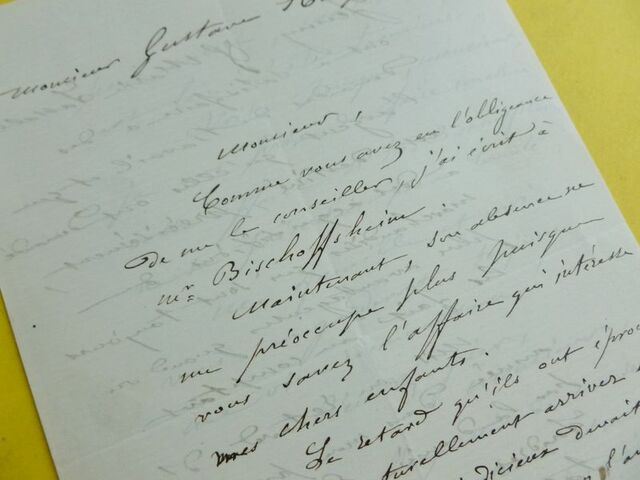 Monsieur Gustave
Monsieur,
Comme vous avez eu l'obligeance
de me le conseiller, j'ai écrit à
Mr. Bischoffsheim.
Maintenant, son absence ne
me préoccupe plus puisque
vous savez l'affaire qui intéresse
mes chers enfants.
Le retard qu'ils ont épro
turellement arriver
dicieux devait